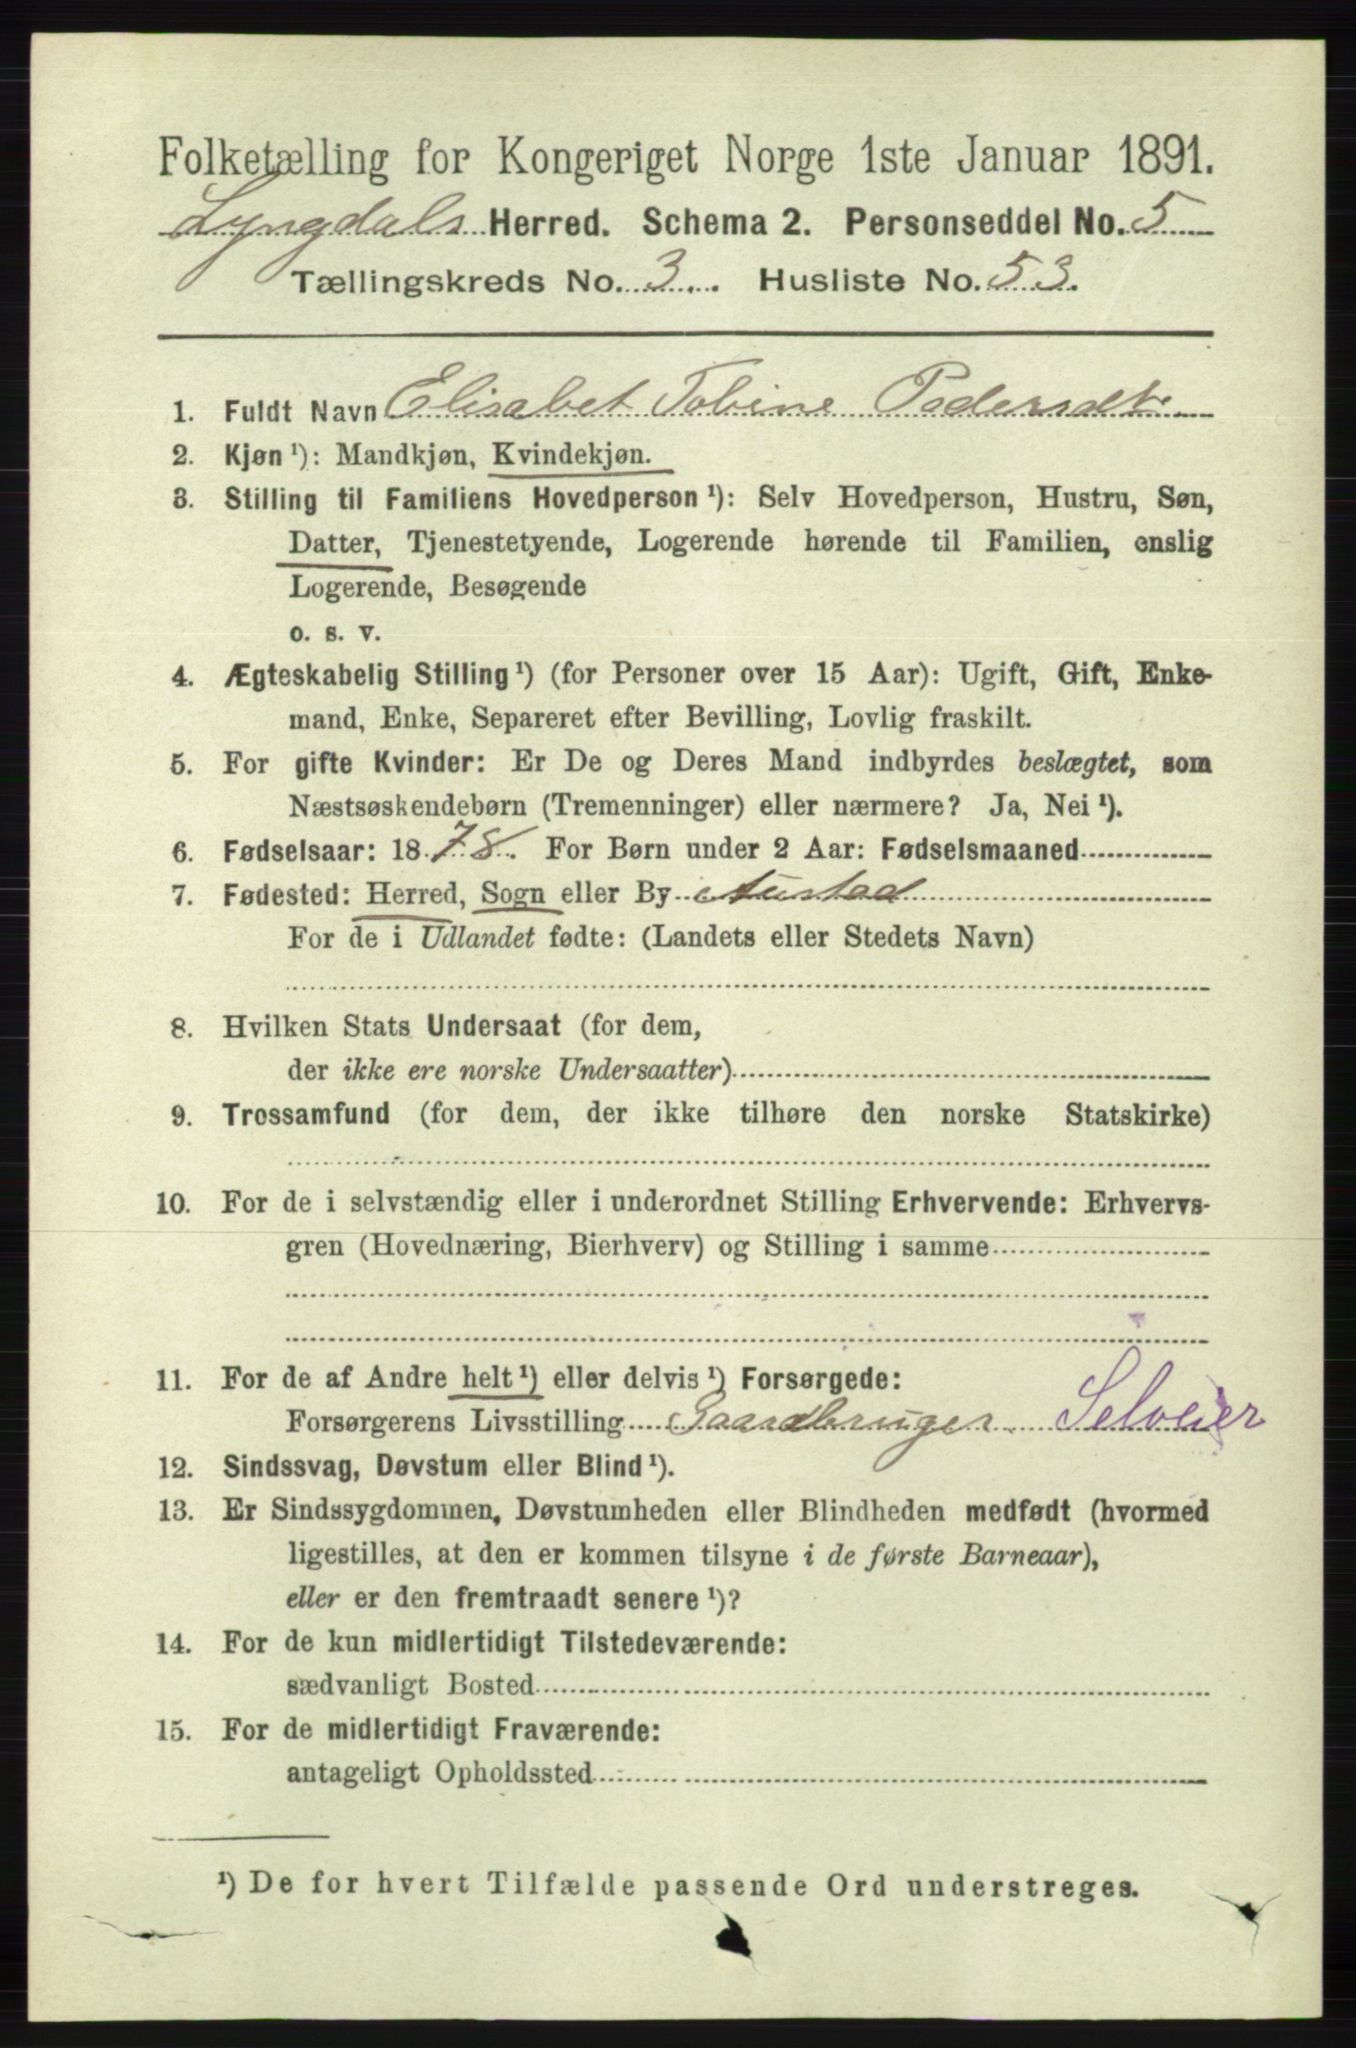 Folketælling for Kongeriget Norge 1ste Januar 1891.
Lyngdals Herred. Schema 2. Personseddel No. 5
Tællingskreds No. 3. Husliste No. 53.
1. Fuldt Navn Elisabet Tobine Pedersdtr.
2. Kjøn ¹): Mandkjøn, Kvindekjøn.
3. Stilling til Familiens Hovedperson ¹): Selv Hovedperson, Hustru, Søn,
Datter, Tjenestetyende, Logerende hørende til Familien, enslig
Logerende, Besøgende
o. s. v.
4. Ægteskabelig Stilling ¹) (for Personer over 15 Aar): Ugift, Gift, Enke-
mand, Enke, Separeret efter Bevilling, Lovlig fraskilt.
5. For gifte Kvinder: Er De og Deres Mand indbyrdes beslægtet, som
Næstsøskendebørn (Tremenninger) eller nærmere? Ja, Nei ¹).
6. Fødselsaar: 1878. For Børn under 2 Aar: Fødselsmaaned
7. Fødested: Herred, Sogn eller By Austad
For de i Udlandet fødte: (Landets eller Stedets Navn)
8. Hvilken Stats Undersaat (for dem,
der ikke ere norske Undersaatter)
9. Trossamfund (for dem, der ikke tilhøre den norske Statskirke)
10. For de i selvstændig eller i underordnet Stilling Erhvervende: Erhvervs-
gren (Hovednæring, Bierhverv) og Stilling i samme
11. For de af Andre helt ¹) eller delvis ¹) Forsørgede:
Forsørgerens Livsstilling Gaardbruger Selveier
12. Sindssvag, Døvstum eller Blind ¹).
13. Er Sindssygdommen, Døvstumheden eller Blindheden medfødt (hvormed
ligestilles, at den er kommen tilsyne i de første Barneaar),
eller er den fremtraadt senere ¹)?
14. For de kun midlertidigt Tilstedeværende:
sædvanligt Bosted
15. For de midlertidigt Fraværende:
antageligt Opholdssted
¹) De for hvert Tilfælde passende Ord understreges.